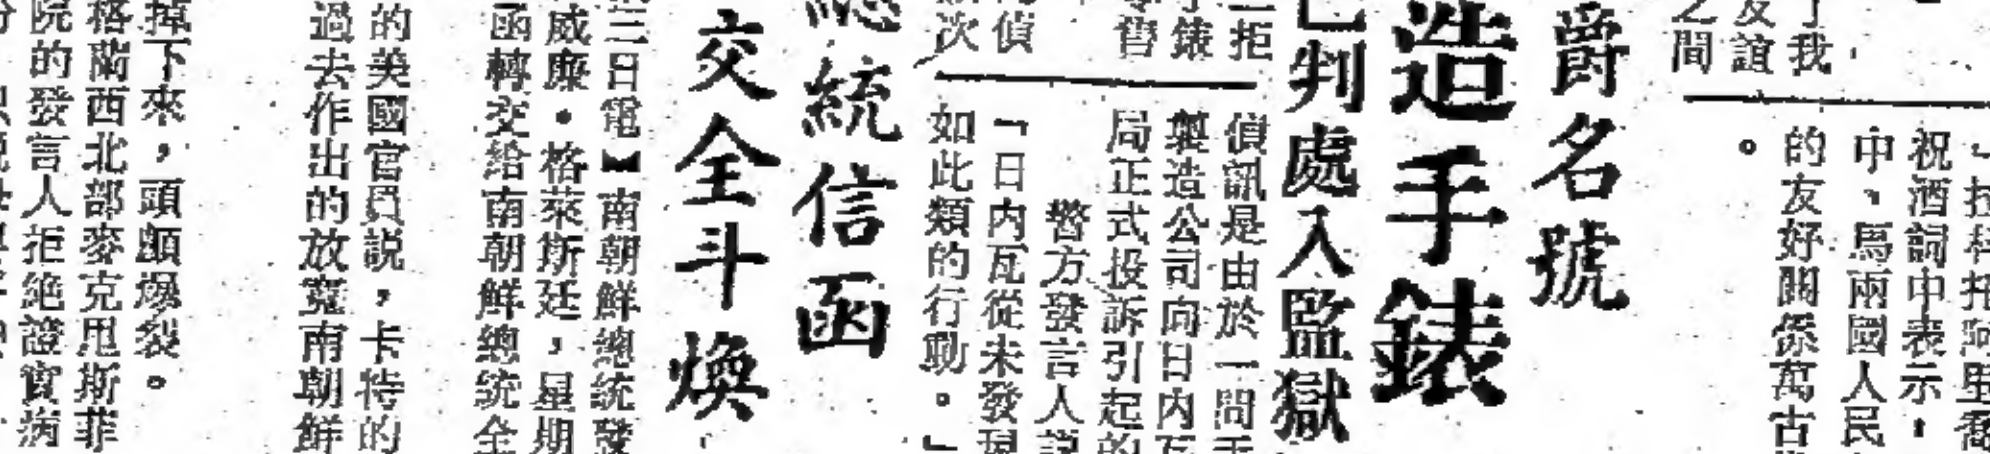 了我
友誼
之間
祝酒詞中表示，
中、馬兩國人民
的友好關係萬古
。
爵名號
造手錶
已判處入監獄
拒
錶
售
偵
次
偵訊是由於一間手
製造公司向日內瓦
局正式投訴引起的
警方發言人說
「日內瓦從未發現
如此類的行動。」
總統信函
交全斗煥
三日電】南朝鮮總統發
威廉·格萊斯廷，星期
函轉交給南朝鮮總統全
的美國官員說，卡特的
過去作出的放寬南朝鮮
掉下來，頭顱爆裂。
格蘭西北部麥克甩斯菲
院的發言人拒絶證實病